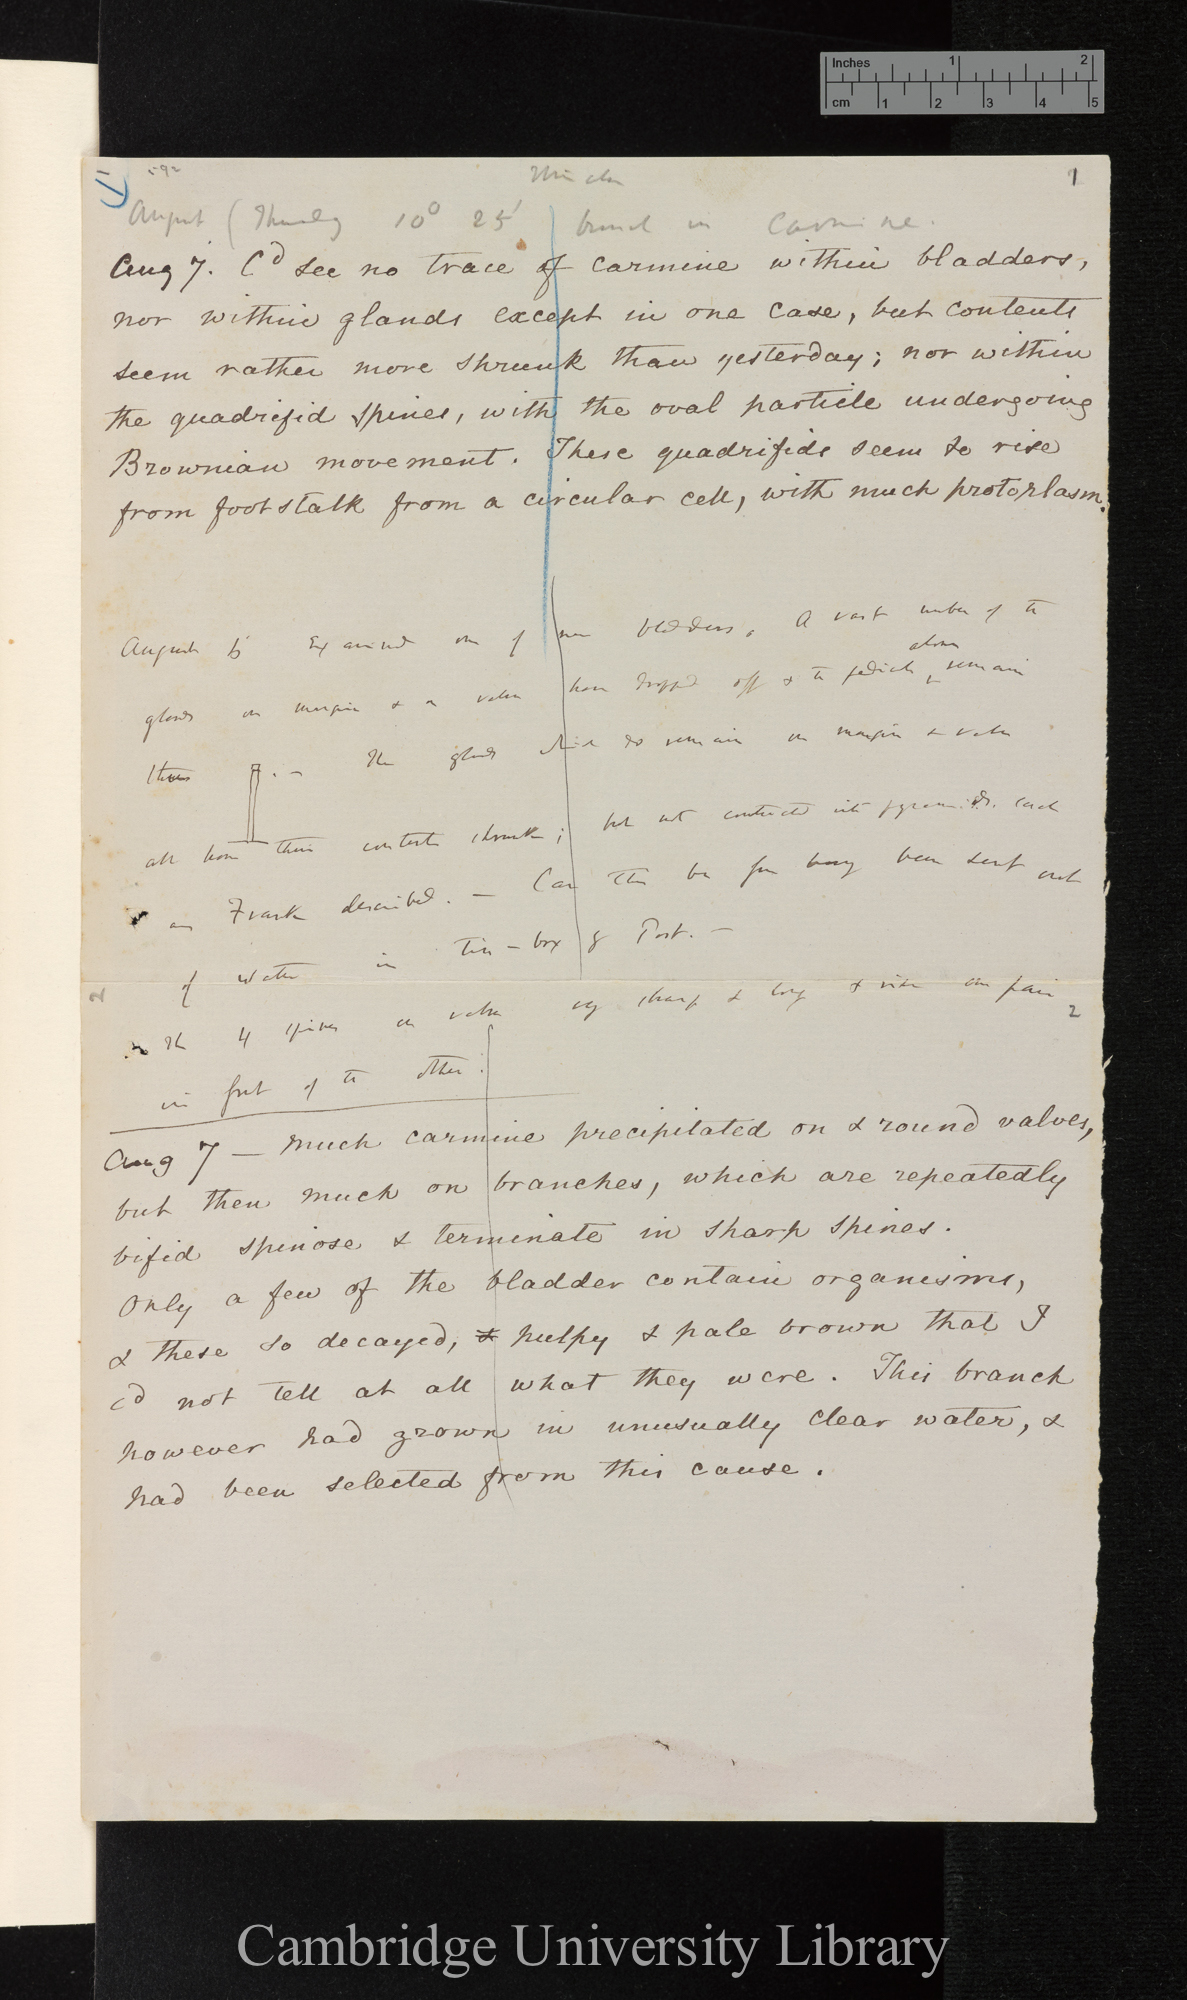 Inches 1 2
cm 1 2 3 4 5
1
August (Thursday 10° 25' branch in Carmine.
Aug 7. Cd see no trace of carmine within bladders,
nor within glands except in one case, but contents
seem rather more shrunk than yesterday; nor within
the quadrifid spines, with the oval particle undergoing
Brownian movement. These quadrifids seem to rise
from footstalk from a circular cell, with much protoplasm.
August Examined one of new bladders, A vast number of the
alone
glands on margin & on valve have dropped off & the pedicels remain
thus . — The glands which do remain on margin & valve
all have their contents shrunk; but not contracted into pyramids, such
as Frank described. — Can this be from having been sent out
of water in Tin-box by Post. —
2
The 4 spines on valve very sharp & long & rise one pair
2
in front of the other.
Aug 7 — Much carmine precipitated on & round valves,
but then much on branches, which are repeatedly
bifid spinose & terminate in sharp spines.
Only a few of the bladder contain organisms,
& these so decayed, & pulpy & pale brown that I
cd not tell at all what they were. This branch
however had grown in unusually clear water, &
had been selected from this cause.
Cambridge University Library